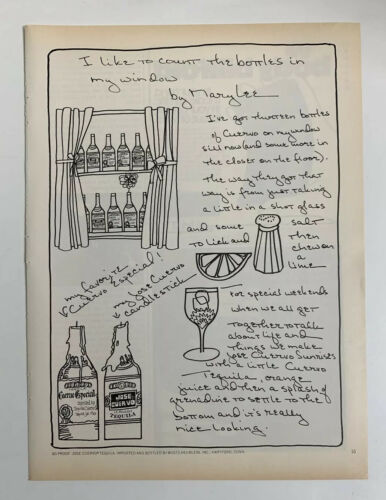 I like to count the bottles in
my window
by Marylee
I've got thirteen bottles
of Cuervo on my window
sill now (and some more in
the closet on the floor).
The way they got that
way is from just taking
a little in a shot glass
and some salt
to lick and then
chew on
a
lime
my favorite
Cuervo Especial!
my Jose Cuervo
candlestick
For special weekends
when we all get
together to talk
about life and
things we make
Jose Cuervo Sunrises
with a little Cuervo
Tequila, orange
juice and then a splash of
grenadine to settle to the
bottom and it's really
nice looking.
Cuervo Especial
JOSE
CUERVO
TEQUILA
80 PROOF. JOSE CUERVO® TEQUILA. IMPORTED AND BOTTLED BY ©1975 HEUBLEIN, INC., HARTFORD, CONN.